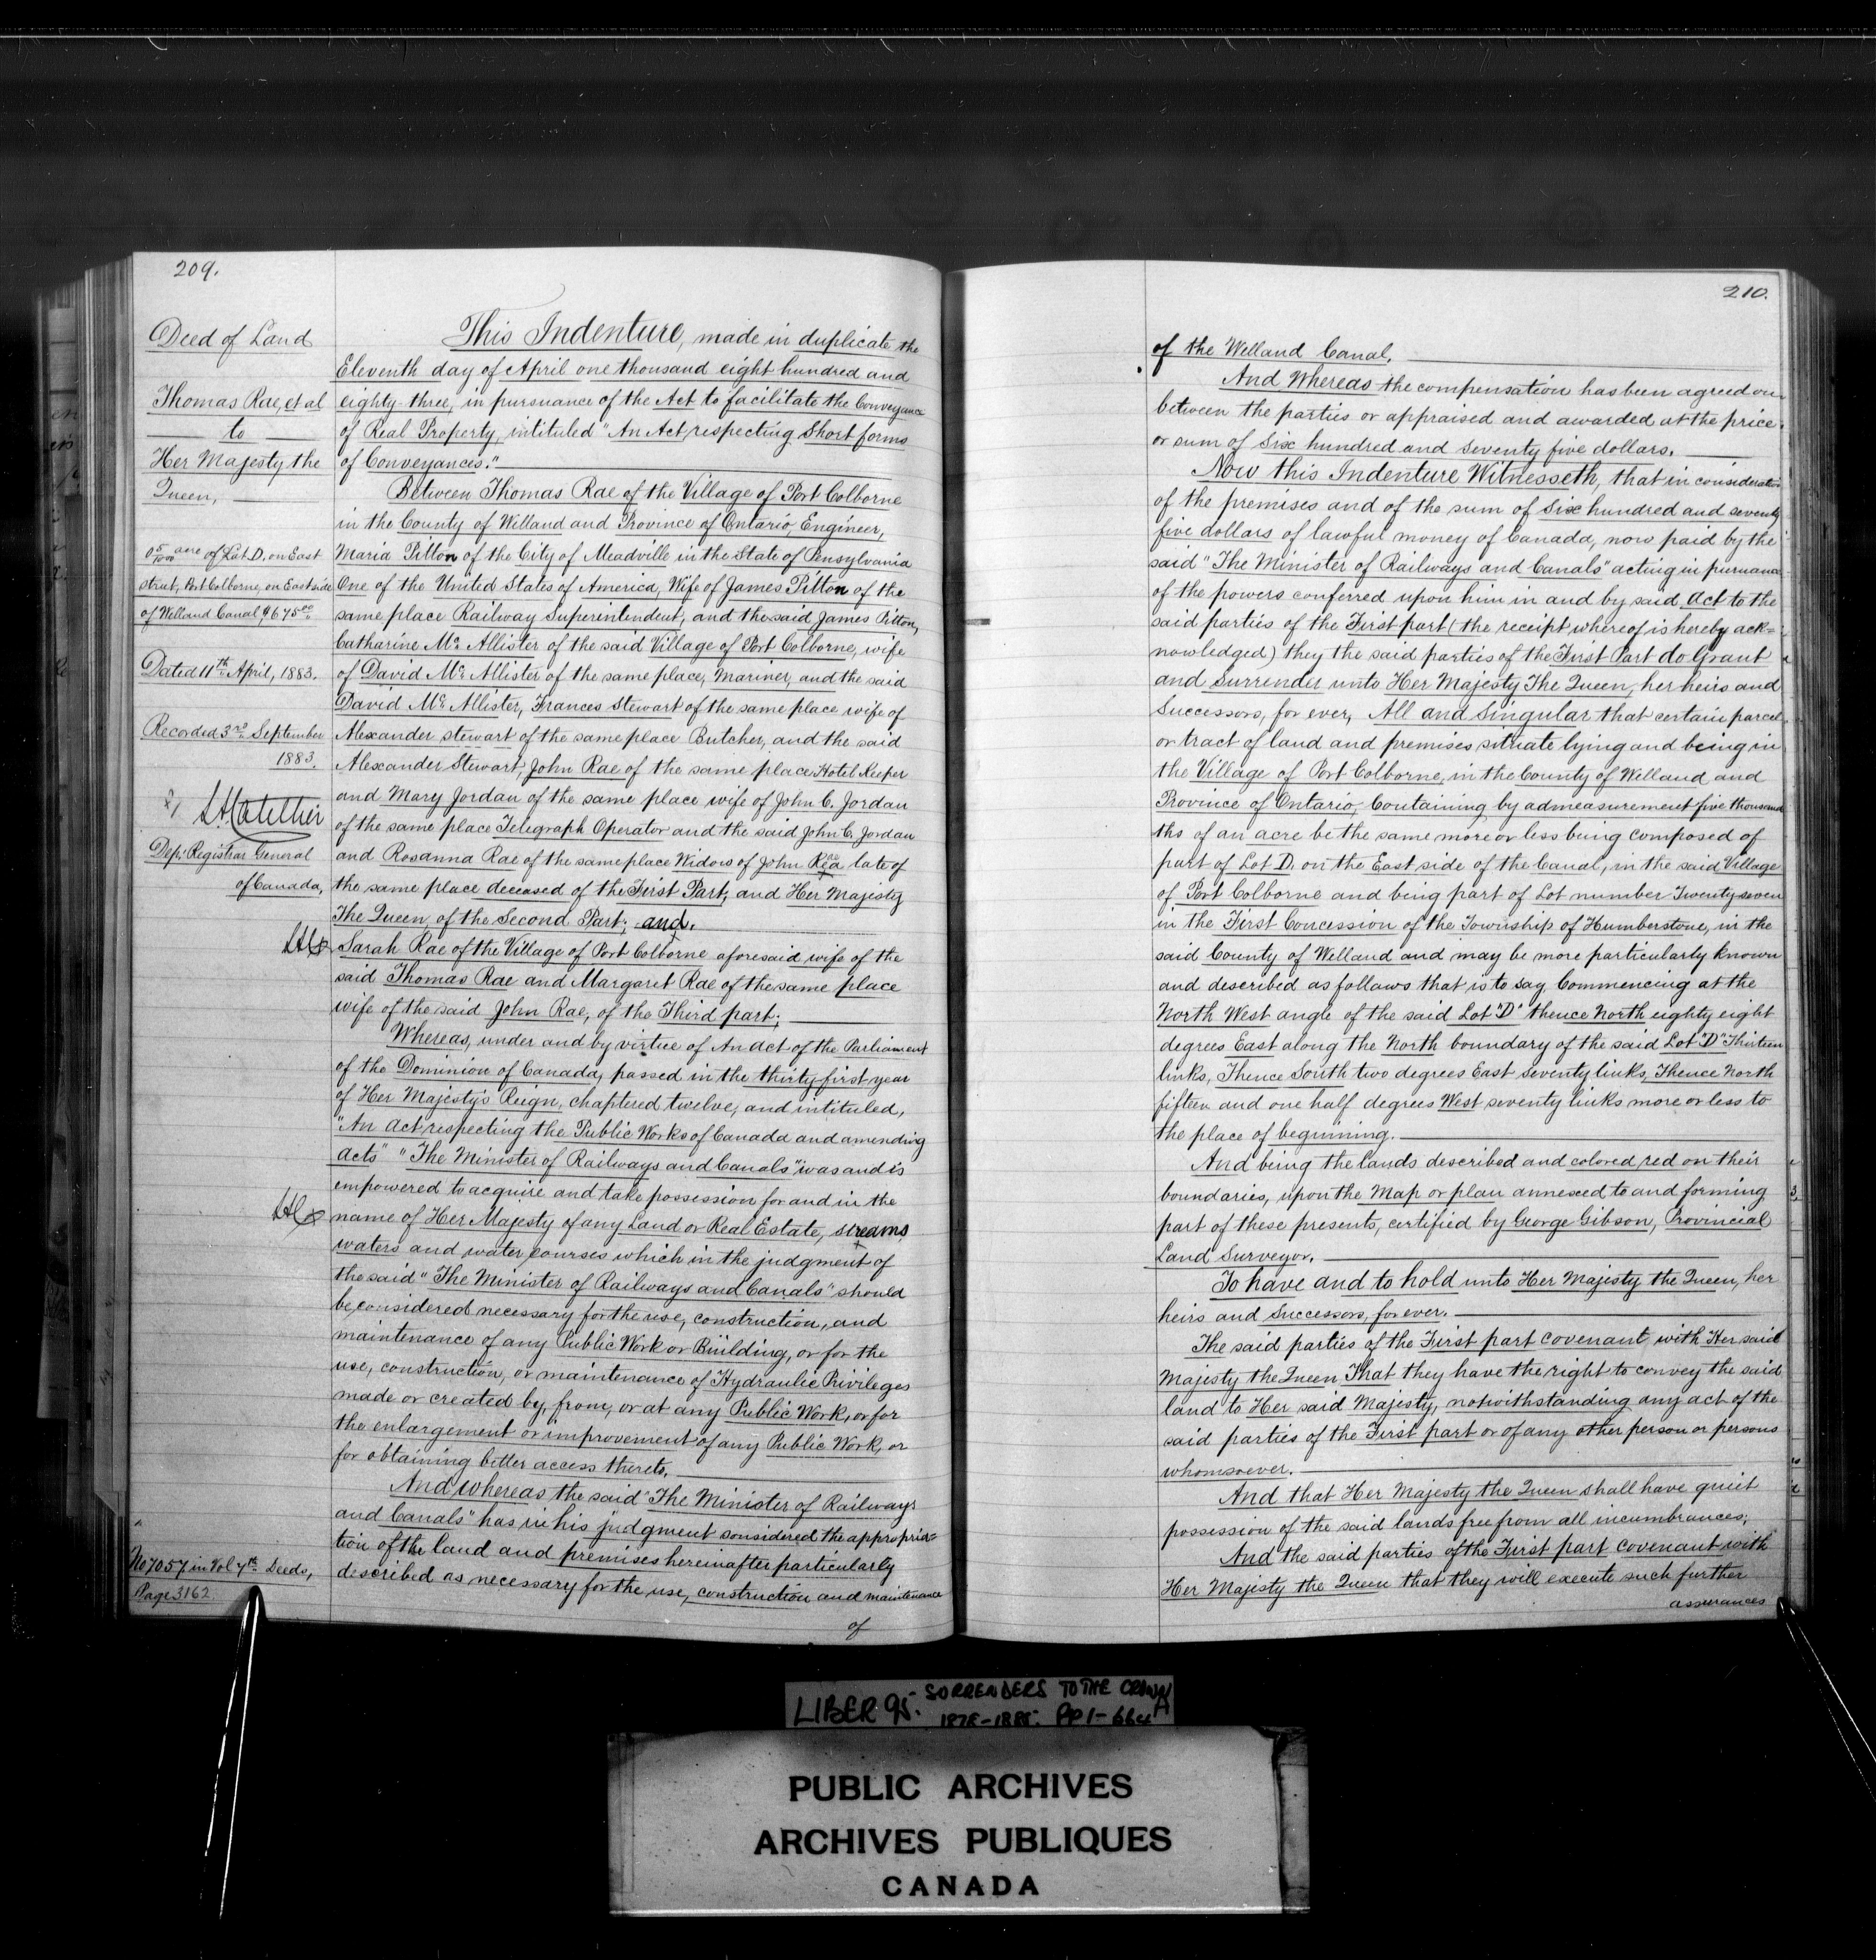 209.
Deed of Land
Thomas Rae, et al
to
Her Majesty the
Queen,
acre of Lot D. on East
street, Port Colborne, on East side
of Welland Canal $675.00
Dated 11th April, 1883.
Recorded 3rd September
1883.
Dep: Registrar General
of Canada,
No 7057 in Vol 7th Deeds,
Page 3162
This Indenture, made in duplicate the
Eleventh day of April one thousand eight hundred and
eighty-three, in pursuance of the Act to facilitate the Conveyance
of Real Property, intituled "An Act respecting Short forms
of Conveyances."
Between Thomas Rae of the Village of Port Colborne
in the County of Welland and Province of Ontario, Engineer,
Maria Pitton of the City of Meadville in the State of Pensylvania
One of the United States of America, Wife of James Pitton of the
same place Railway Superintendent, and the said James Pitton,
Catharine Mc. Allister of the said Village of Port Colborne, wife
of David Mc. Allister of the same place, Mariner, and the said
David Mc. Allister, Frances Stewart of the same place wife of
Alexander Stewart of the same place Butcher, and the said
Alexander Stewart, John Rae of the same place Hotel Keeper
and Mary Jordan of the same place wife of John C. Jordan
of the same place Telegraph Operator and the said John C. Jordan
and Rosanna Rae of the same place Widow of John Rae late of
the same place deceased of the First Part; and Her Majesty
The Queen, of the Second Part; and.
Sarah Rae of the Village of Port Colborne aforesaid wife of the
said Thomas Rae and Margaret Rae of the same place
wife of the said John Rae, of the Third part;
Whereas, under and by virtue of An Act of the Parliament
of the Dominion of Canada, passed in the thirty-first year
of Her Majesty's Reign, chaptered twelve, and intituled,
"An Act respecting the Public Works of Canada and amending
Acts" "The Minister of Railways and Canals" was and is
empowered to acquire and take possession for and in the
name of Her Majesty of any Land or Real Estate, streams,
waters and water courses which in the judgment of
the said "The Minister of Railways and Canals" should
be considered necessary for the use, construction, and
maintenance of any Public Work or Building, or for the
use, construction, or maintenance of Hydraulic Privileges
made or created by, from, or at any Public Work, or for
the enlargement or improvement of any Public Work, or
for obtaining better access thereto.
And whereas the said "The Minister of Railways
and Canals" has in his judgment considered the appropria=
tion of the land and premises hereinafter particularly
described as necessary for the use, construction and maintenance
of
210.
of the Welland Canal.
And Whereas the compensation has been agreed on
between the parties or appraised and awarded at the price
or sum of Six hundred and seventy five dollars.
Now this Indenture Witnesseth, that in consideration
of the premises and of the sum of Six hundred and seventy
five dollars of lawful money of Canada, now paid by the
said "The Minister of Railways and Canals" acting in pursuance
of the powers conferred upon him in and by said Act to the
said parties of the First part (the receipt whereof is hereby ack=
nowledged) they the said parties of the First Part do Grant
and Surrender unto Her Majesty The Queen, her heirs and
Successors, for ever, All and Singular that certain parcel
or tract of land and premises situate lying and being in
the Village of Port Colborne, in the County of Welland and
Province of Ontario, Containing by admeasurement five thousand
ths of an acre be the same more or less being composed of
part of Lot D. on the East side of the Canal, in the said Village
of Port Colborne and being part of Lot number Twenty seven
in the First Concession of the Township of Humberstone, in the
said County of Welland and may be more particularly known
and described as follows that is to say Commencing at the
North West angle of the said Lot "D" thence North eighty eight
degrees East along the North boundary of the said Lot "D" Thirteen
links, Thence South two degrees East seventy links, Thence North
fifteen and one half degrees West seventy links more or less to
the place of beginning.
And being the lands described and colored red on their
boundaries, upon the Map or plan annexed to and forming
part of these presents, certified by George Gibson, Provincial
Land Surveyor.
To have and to hold unto Her Majesty the Queen, her
heirs and Successors, for ever.
The said parties of the First part covenant with Her said
Majesty the Queen That they have the right to convey the said
land to Her said Majesty, notwithstanding any act of the
said parties of the First part or of any other person or persons
whomsoever.
And that Her Majesty the Queen shall have quiet
possession of the said lands free from all incumbrances;
And the said parties of the First part covenant with
Her Majesty the Queen that they will execute such further
assurances
LIBER 95. SORRENDERS TO THE CROWN
1878-1885. PP 1-664
PUBLIC ARCHIVES
ARCHIVES PUBLIQUES
CANADA